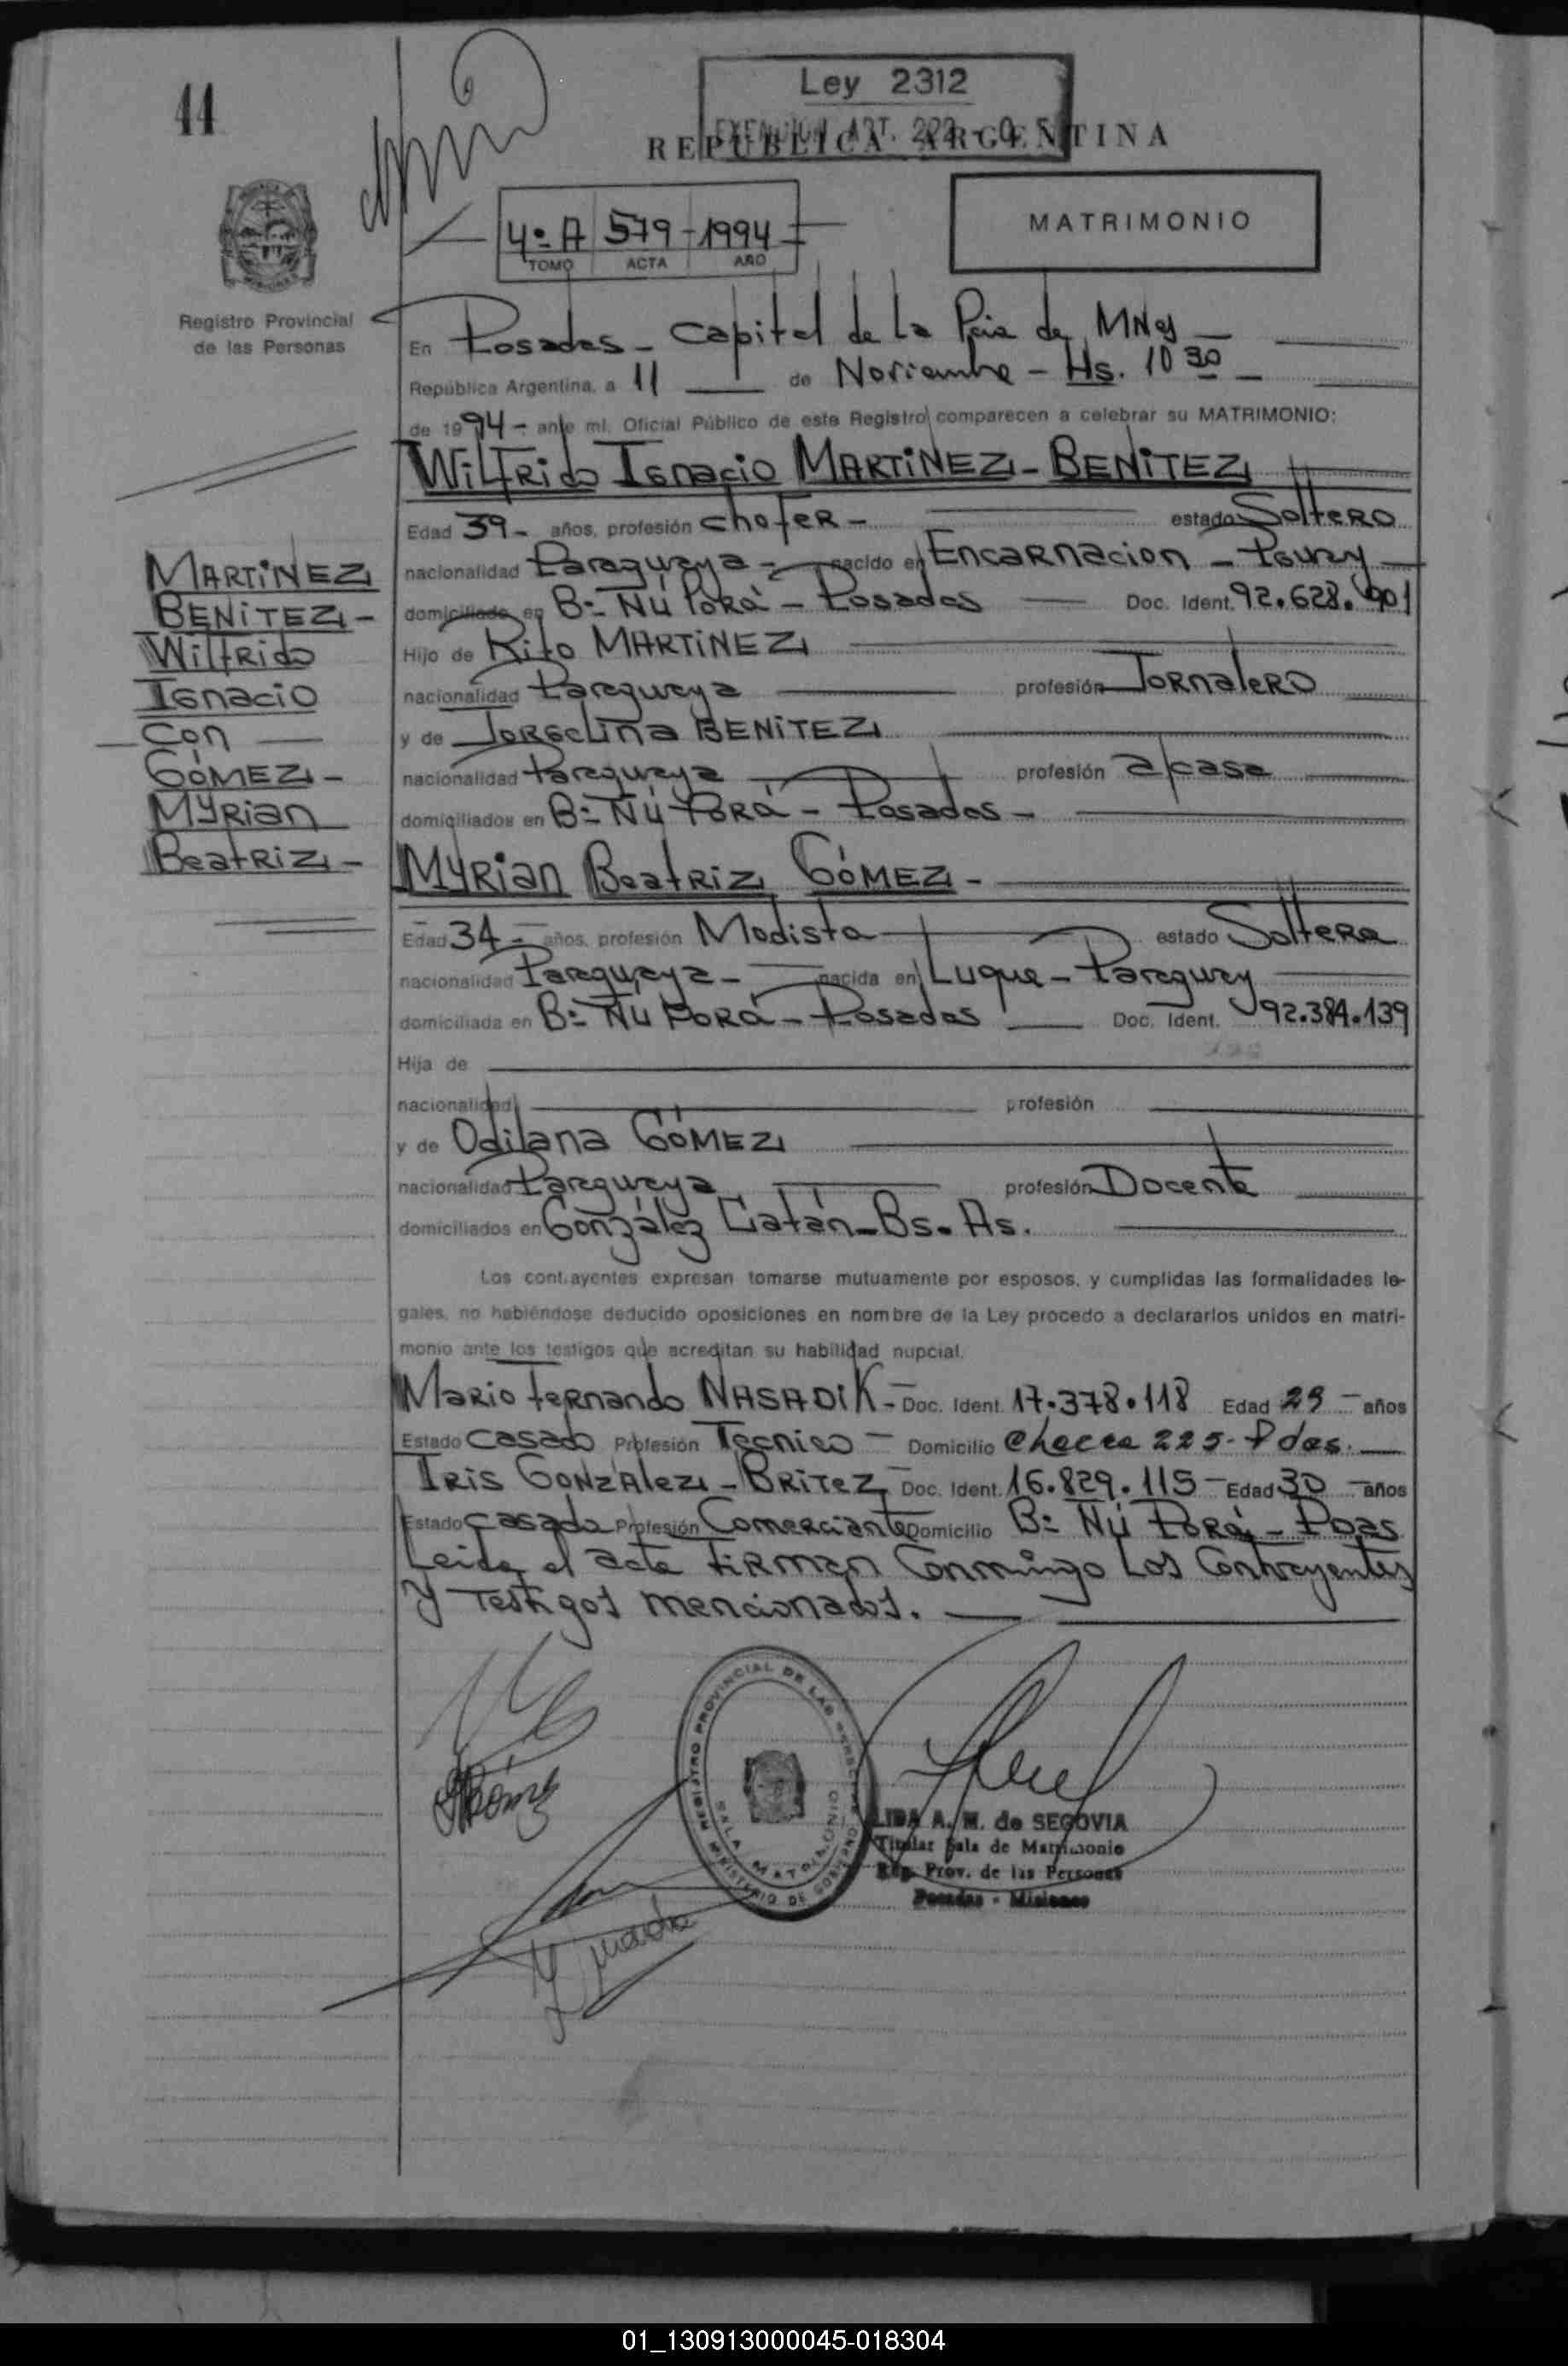 44
Ley 2312
EXENCION ART. 222
REPUBLICA ARGENTINA
4º A 579 - 1994
TOMO ACTA AÑO
MATRIMONIO
Registro Provincial
de las Personas
En Posadas - Capital de La Pcia de MNes
República Argentina, a 11 de Noviembre - Hs. 10 30
de 1994 - ante mí, Oficial Público de este Registro comparecen a celebrar su MATRIMONIO:
Wilfrido Ignacio MARTINEZ - BENITEZ
Edad 39 - años, profesión chofer - estado Soltero
nacionalidad Paraguaya - nacido en Encarnacion - Pguay
domiciliado en Bº Ñú Porá - Posadas Doc. Ident. 92.628.901
Hijo de Rito MARTINEZ
nacionalidad Paraguaya profesión Jornalero
y de Jorgelina BENITEZ
nacionalidad Paraguaya profesión a/casa
domiciliados en Bº Ñú Porá - Posadas -
MARTINEZ
BENITEZ -
Wilfrido
Ignacio
Con
GÓMEZ -
Myrian
Beatriz -
Myrian Beatriz GÓMEZ -
Edad 34 - años, profesión Modista estado Soltera
nacionalidad Paraguaya - nacida en Luque - Paraguay
domiciliada en Bº Ñú Porá - Posadas Doc. Ident. 92.384.139
Hija de
nacionalidad profesión
y de Odilana GÓMEZ
nacionalidad Paraguaya profesión Docente
domiciliados en González Catán - Bs. As.
Los contrayentes expresan tomarse mutuamente por esposos, y cumplidas las formalidades le-
gales, no habiéndose deducido oposiciones en nombre de la Ley procedo a declararlos unidos en matri-
monio ante los testigos que acreditan su habilidad nupcial.
Mario Fernando NASADIK - Doc. Ident. 17.378.118 Edad 29 - años
Estado Casado Profesión Tecnico - Domicilio 225 - Pdas.
Iris GONZALEZ - BRITEZ - Doc. Ident. 16.829.115 - Edad 30 - años
Estado casada Profesión Comerciante Domicilio Bº Ñú Porá - Pdas
Leida el acta firman Conmigo Los Contrayentes
y Testigos mencionados.
REGISTRO PROVINCIAL DE LAS PERSONAS
SALA MATRIMONIO
MINISTERIO DE GOBIERNO
LIDA A. M. de SEGOVIA
Titular Sala de Matrimonio
Reg. Prov. de las Personas
Posadas - Misiones
01_130913000045-018304